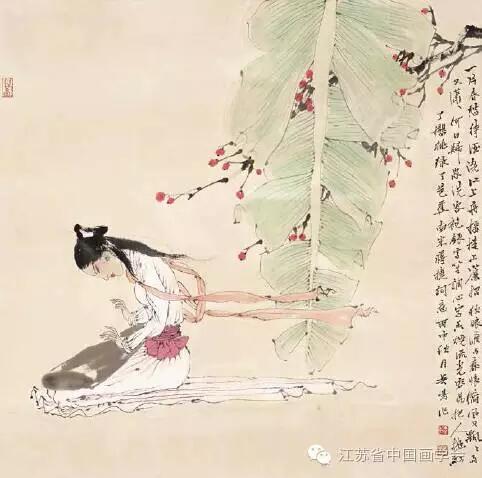 一片春愁待酒浇江上舟摇楼上帘招秋娘渡与泰娘桥风又飘飘雨
又潇潇何日归家洗客袍银字笙调心字香烧流光容易把人抛红
了樱桃绿了芭蕉南宋蒋捷词意丙申秋月
江苏省中国画学